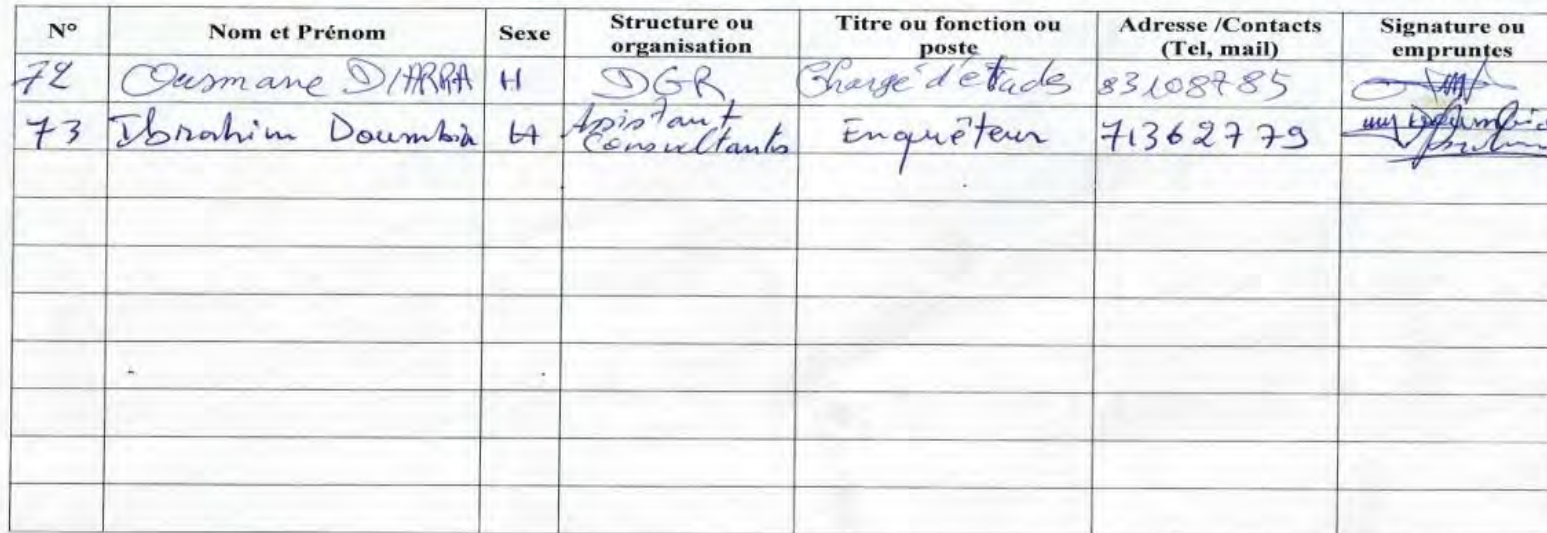 N° Nom et Prénom Sexe Structure ou organisation Titre ou fonction ou poste Adresse /Contacts (Tel, mail) Signature ou empruntes
72 Ousmane DIARRA H DGR Chargé d'études 83108785
73 Ibrahim Doumbia H Assistant Consultants Enquêteur 71362779